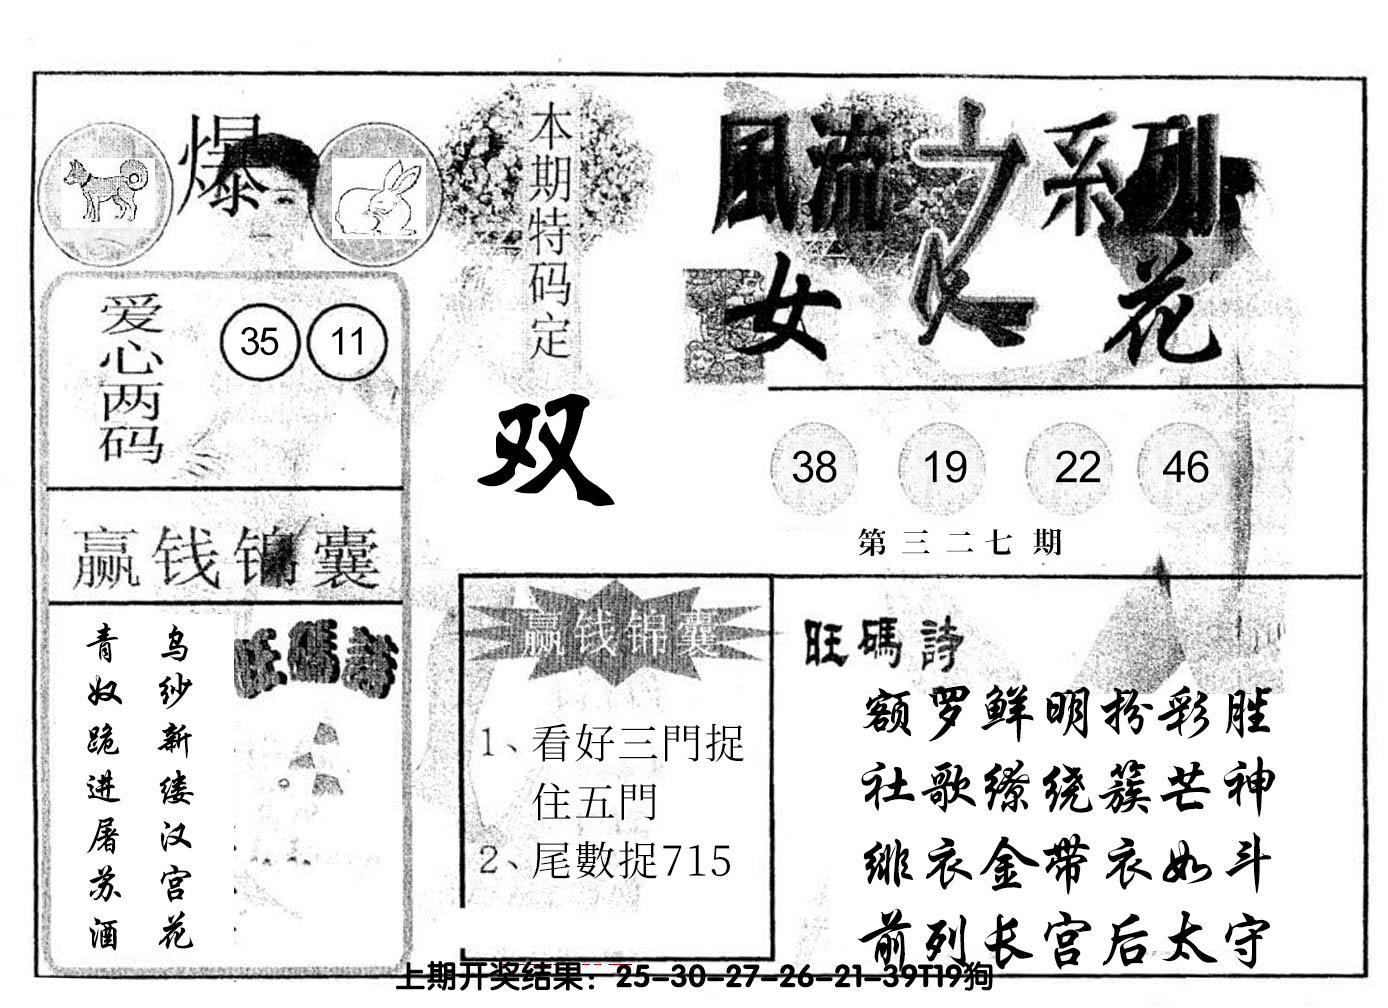 爆
本期特码定
双
風流之系列
女人花
爱心两码
35 11
38 19 22 46
第三二七期
赢钱锦囊
乌纱新缕汉宫花
青奴跪进屠苏酒
旺碼詩
赢钱锦囊
1、看好三門捉
住五門
2、尾數捉715
旺碼詩
额罗鲜明扮彩胜
社歌缭绕簇芒神
绯衣金带衣如斗
前列长宫后太守
上期开奖结果：25-30-27-26-21-39T19狗